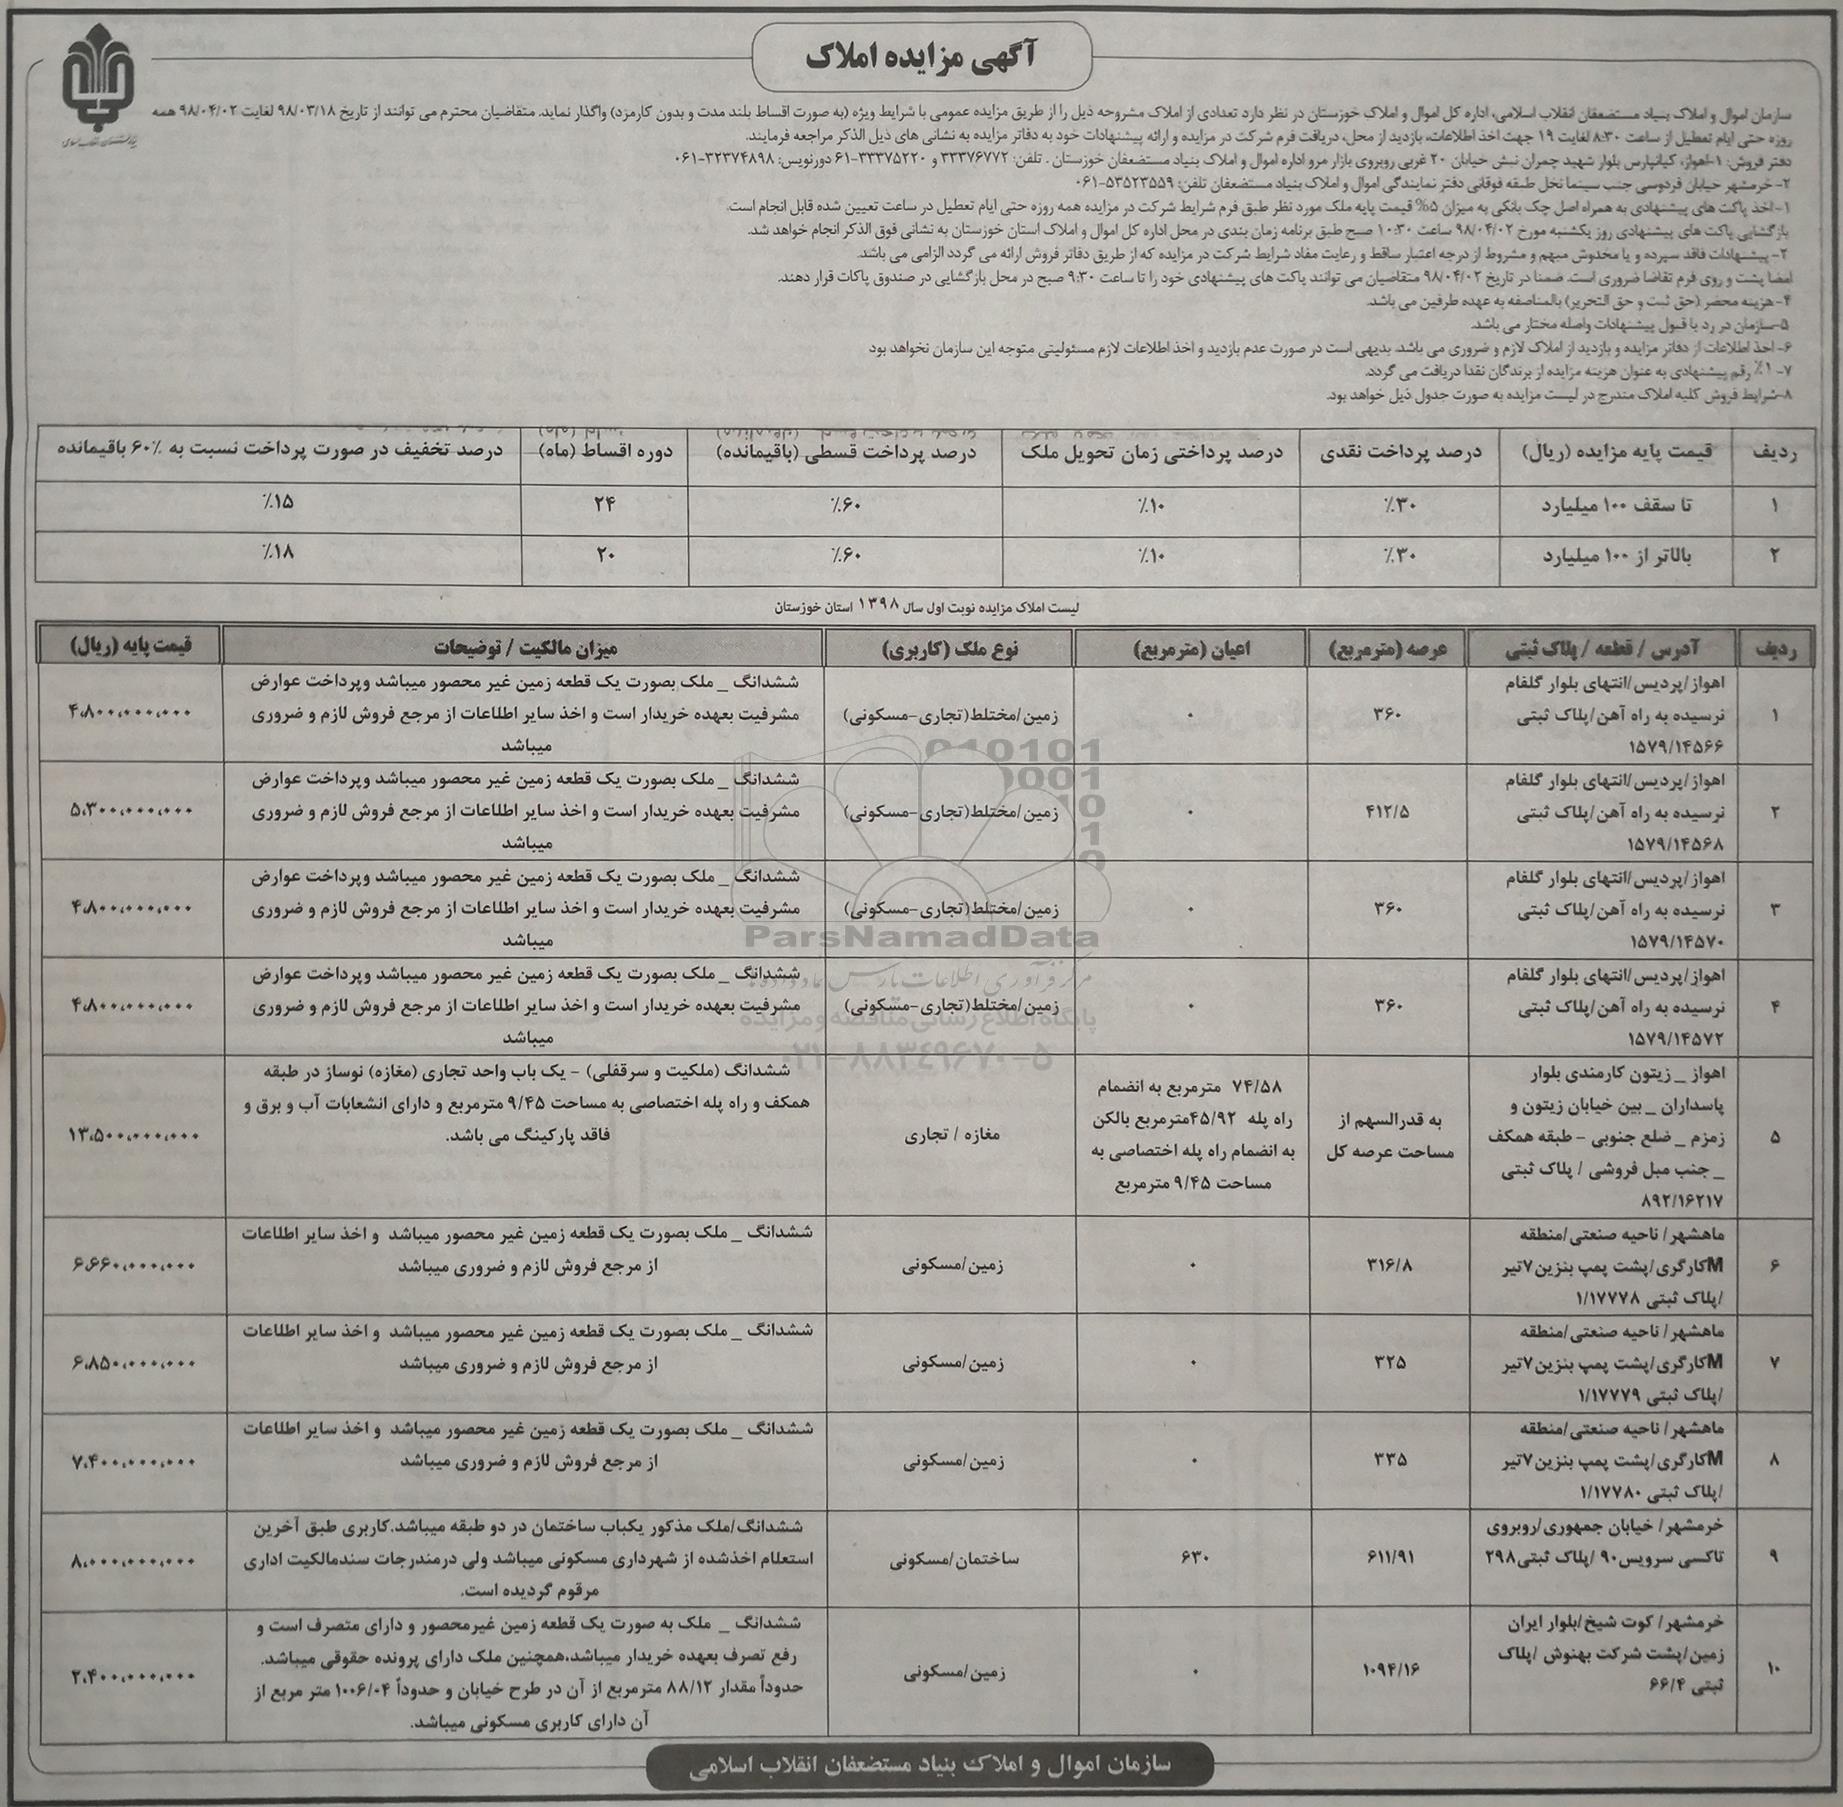 آگهی مزایده املاک
بنیاد مستضعفان انقلاب اسلامی
سازمان اموال و املاک بنیاد مستضعفان انقلاب اسلامی، اداره کل اموال و املاک خوزستان در نظر دارد تعدادی از املاک مشروحه ذیل را از طریق مزایده عمومی با شرایط ویژه (به صورت اقساط بلند مدت و بدون کارمزد) واگذار نماید. متقاضیان محترم می توانند از تاریخ ۹۸/۰۳/۱۸ لغایت ۹۸/۰۴/۰۲ همه
روزه حتی ایام تعطیل از ساعت ۸:۳۰ لغایت ۱۹ جهت اخذ اطلاعات، بازدید از محل، دریافت فرم شرکت در مزایده و ارائه پیشنهادات خود به دفاتر مزایده به نشانی های ذیل الذکر مراجعه فرمایند.
دفتر فروش: ۱-اهواز، کیانپارس بلوار شهید چمران نبش خیابان ۲۰ غربی روبروی بازار مرو اداره اموال و املاک بنیاد مستضعفان خوزستان . تلفن: ۳۳۳۷۶۷۷۲ و ۳۳۳۷۵۲۲۰-۶۱ دورنویس: ۳۲۳۷۴۸۹۸-۰۶۱
۲-خرمشهر خیابان فردوسی جنب سینما نخل طبقه فوقانی دفتر نمایندگی اموال و املاک بنیاد مستضعفان تلفن: ۵۳۵۲۳۵۵۹-۰۶۱
۱-اخذ پاکت های پیشنهادی به همراه اصل چک بانکی به میزان ۵% قیمت پایه ملک مورد نظر طبق فرم شرایط شرکت در مزایده همه روزه حتی ایام تعطیل در ساعت تعیین شده قابل انجام است.
بازگشایی پاکت های پیشنهادی روز یکشنبه مورخ ۹۸/۰۴/۰۲ ساعت ۱۰:۳۰ صبح طبق برنامه زمان بندی در محل اداره کل اموال و املاک استان خوزستان به نشانی فوق الذکر انجام خواهد شد.
۲- پیشنهادات فاقد سپرده و یا مخدوش مبهم و مشروط از درجه اعتبار ساقط و رعایت مفاد شرایط شرکت در مزایده که از طریق دفاتر فروش ارائه می گردد الزامی می باشد.
امضا پشت و روی فرم تقاضا ضروری است. ضمنا در تاریخ ۹۸/۰۴/۰۲ متقاضیان می توانند پاکت های پیشنهادی خود را تا ساعت ۹:۳۰ صبح در محل بازگشایی در صندوق پاکات قرار دهند.
۴-هزینه محضر (حق ثبت و حق التحریر) بالمناصفه به عهده طرفین می باشد.
۵-سازمان در رد یا قبول پیشنهادات واصله مختار می باشد.
۶- اخذ اطلاعات از دفاتر مزایده و بازدید از املاک لازم و ضروری می باشد. بدیهی است در صورت عدم بازدید و اخذ اطلاعات لازم مسئولیتی متوجه این سازمان نخواهد بود
۷- ۱% رقم پیشنهادی به عنوان هزینه مزایده از برندگان نقدا دریافت می گردد.
۸-شرایط فروش کلیه املاک مندرج در لیست مزایده به صورت جدول ذیل خواهد بود.
ردیف قیمت پایه مزایده (ریال) درصد پرداخت نقدی درصد پرداختی زمان تحویل ملک درصد پرداخت قسطی (باقیمانده) دوره اقساط (ماه) درصد تخفیف در صورت پرداخت نسبت به ۶۰% باقیمانده
۱ تا سقف ۱۰۰ میلیارد ۳۰% ۱۰% ۶۰% ۲۴ ۱۵%
۲ بالاتر از ۱۰۰ میلیارد ۳۰% ۱۰% ۶۰% ۲۰ ۱۸%
لیست املاک مزایده نوبت اول سال ۱۳۹۸ استان خوزستان
ردیف آدرس / قطعه / پلاک ثبتی عرصه (مترمربع) اعیان (مترمربع) نوع ملک (کاربری) میزان مالکیت / توضیحات قیمت پایه (ریال)
اهواز/پردیس/انتهای بلوار گلفام ششدانگ _ ملک بصورت یک قطعه زمین غیر محصور میباشد وپرداخت عوارض
۱ نرسیده به راه آهن/پلاک ثبتی ۳۶۰ ۰ زمین/مختلط(تجاری-مسکونی) مشرفیت بعهده خریدار است و اخذ سایر اطلاعات از مرجع فروش لازم و ضروری ۴،۸۰۰،۰۰۰،۰۰۰
۱۵۷۹/۱۴۵۶۶ میباشد
اهواز/پردیس/انتهای بلوار گلفام ششدانگ _ ملک بصورت یک قطعه زمین غیر محصور میباشد وپرداخت عوارض
۲ نرسیده به راه آهن/پلاک ثبتی ۴۱۲/۵ ۰ زمین/مختلط(تجاری-مسکونی) مشرفیت بعهده خریدار است و اخذ سایر اطلاعات از مرجع فروش لازم و ضروری ۵،۳۰۰،۰۰۰،۰۰۰
۱۵۷۹/۱۴۵۶۸ میباشد
اهواز/پردیس/انتهای بلوار گلفام ششدانگ _ ملک بصورت یک قطعه زمین غیر محصور میباشد وپرداخت عوارض
۳ نرسیده به راه آهن/پلاک ثبتی ۳۶۰ ۰ زمین/مختلط(تجاری-مسکونی) مشرفیت بعهده خریدار است و اخذ سایر اطلاعات از مرجع فروش لازم و ضروری ۴،۸۰۰،۰۰۰،۰۰۰
۱۵۷۹/۱۴۵۷۰ میباشد
اهواز/پردیس/انتهای بلوار گلفام ششدانگ _ ملک بصورت یک قطعه زمین غیر محصور میباشد وپرداخت عوارض
۴ نرسیده به راه آهن/پلاک ثبتی ۳۶۰ ۰ زمین/مختلط(تجاری-مسکونی) مشرفیت بعهده خریدار است و اخذ سایر اطلاعات از مرجع فروش لازم و ضروری ۴،۸۰۰،۰۰۰،۰۰۰
۱۵۷۹/۱۴۵۷۲ میباشد
اهواز _ زیتون کارمندی بلوار ۷۴/۵۸ مترمربع به انضمام ششدانگ (ملکیت و سرقفلی) - یک باب واحد تجاری (مغازه) نوساز در طبقه
پاسداران _ بین خیابان زیتون و به قدرالسهم از راه پله ۴۵/۹۲مترمربع بالکن همکف و راه پله اختصاصی به مساحت ۹/۴۵ مترمربع و دارای انشعابات آب و برق و
۵ زمزم _ ضلع جنوبی - طبقه همکف مساحت عرصه کل به انضمام راه پله اختصاصی به مغازه / تجاری فاقد پارکینگ می باشد. ۱۳،۵۰۰،۰۰۰،۰۰۰
_ جنب مبل فروشی / پلاک ثبتی مساحت ۹/۴۵ مترمربع
۸۹۲/۱۶۲۱۷
ماهشهر/ ناحیه صنعتی/منطقه ششدانگ _ ملک بصورت یک قطعه زمین غیر محصور میباشد و اخذ سایر اطلاعات
۶ Mکارگری/پشت پمپ بنزین۷تیر ۳۱۶/۸ ۰ زمین/مسکونی از مرجع فروش لازم و ضروری میباشد ۶،۶۶۰،۰۰۰،۰۰۰
/پلاک ثبتی ۱/۱۷۷۷۸
ماهشهر/ ناحیه صنعتی/منطقه ششدانگ _ ملک بصورت یک قطعه زمین غیر محصور میباشد و اخذ سایر اطلاعات
۷ Mکارگری/پشت پمپ بنزین۷تیر ۳۲۵ ۰ زمین/مسکونی از مرجع فروش لازم و ضروری میباشد ۶،۸۵۰،۰۰۰،۰۰۰
/پلاک ثبتی ۱/۱۷۷۷۹
ماهشهر/ ناحیه صنعتی/منطقه ششدانگ _ ملک بصورت یک قطعه زمین غیر محصور میباشد و اخذ سایر اطلاعات
۸ Mکارگری/پشت پمپ بنزین۷تیر ۳۳۵ ۰ زمین/مسکونی از مرجع فروش لازم و ضروری میباشد ۷،۴۰۰،۰۰۰،۰۰۰
/پلاک ثبتی ۱/۱۷۷۸۰
خرمشهر/ خیابان جمهوری/روبروی ششدانگ/ملک مذکور یکباب ساختمان در دو طبقه میباشد.کاربری طبق آخرین
۹ تاکسی سرویس۹۰ /پلاک ثبتی۲۹۸ ۶۱۱/۹۱ ۶۳۰ ساختمان/مسکونی استعلام اخذشده از شهرداری مسکونی میباشد ولی درمندرجات سندمالکیت اداری ۸،۰۰۰،۰۰۰،۰۰۰
مرقوم گردیده است.
خرمشهر/ کوت شیخ/بلوار ایران ششدانگ _ ملک به صورت یک قطعه زمین غیرمحصور و دارای متصرف است و
زمین/پشت شرکت بهنوش /پلاک رفع تصرف بعهده خریدار میباشد،همچنین ملک دارای پرونده حقوقی میباشد.
۱۰ ثبتی ۶۶/۴ ۱۰۹۴/۱۶ ۰ زمین/مسکونی حدوداً مقدار ۸۸/۱۲ مترمربع از آن در طرح خیابان و حدوداً ۱۰۰۶/۰۴ متر مربع از ۲،۴۰۰،۰۰۰،۰۰۰
آن دارای کاربری مسکونی میباشد.
سازمان اموال و املاک بنیاد مستضعفان انقلاب اسلامی
ParsNamadData
مرکز فرآوری اطلاعات پارس نماد داده ها
پایگاه اطلاع رسانی مناقصه و مزایده
۰۲۱-۸۸۳۴۹۶۷۰-۵